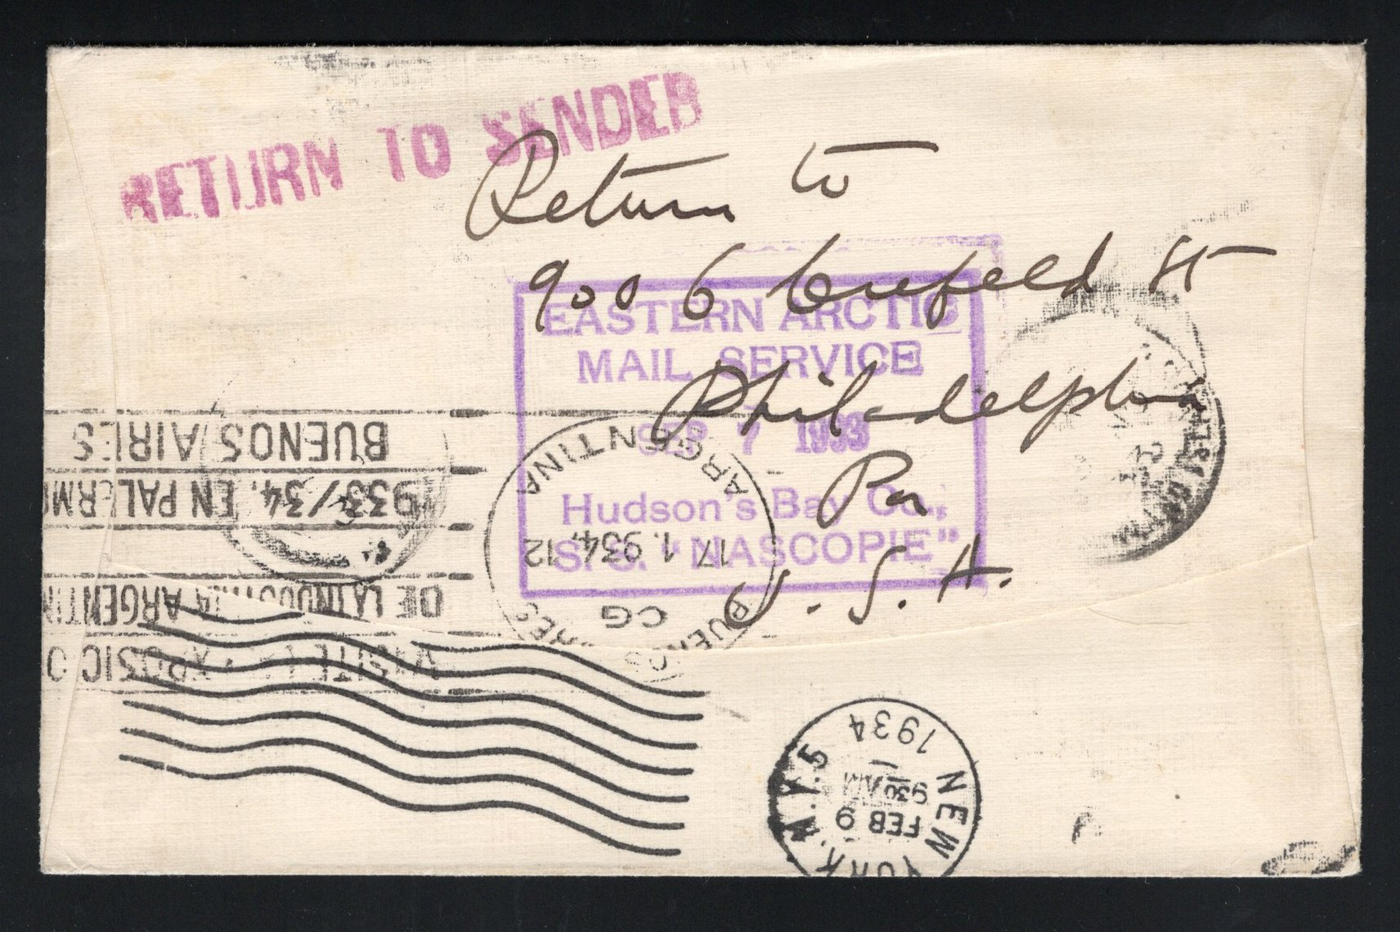 RETURN TO SENDER
Return to
9006 Crefeld St
Philadelphia
Pa
U. S. A.
EASTERN ARCTIC
MAIL SERVICE
SEP 7 1933
Hudson's Bay Co.,
S.S. "NASCOPIE"
VISITE LA EXPOSICIO
DE LA INDUSTRIA ARGENTIN
1933/34. EN PALERM
BUENOS AIRES
BUENOS AIRES
CG
17 1. 934. 12
ARGENTINA
NEW YORK, N.Y. 5
FEB 9
9 30 AM
1934